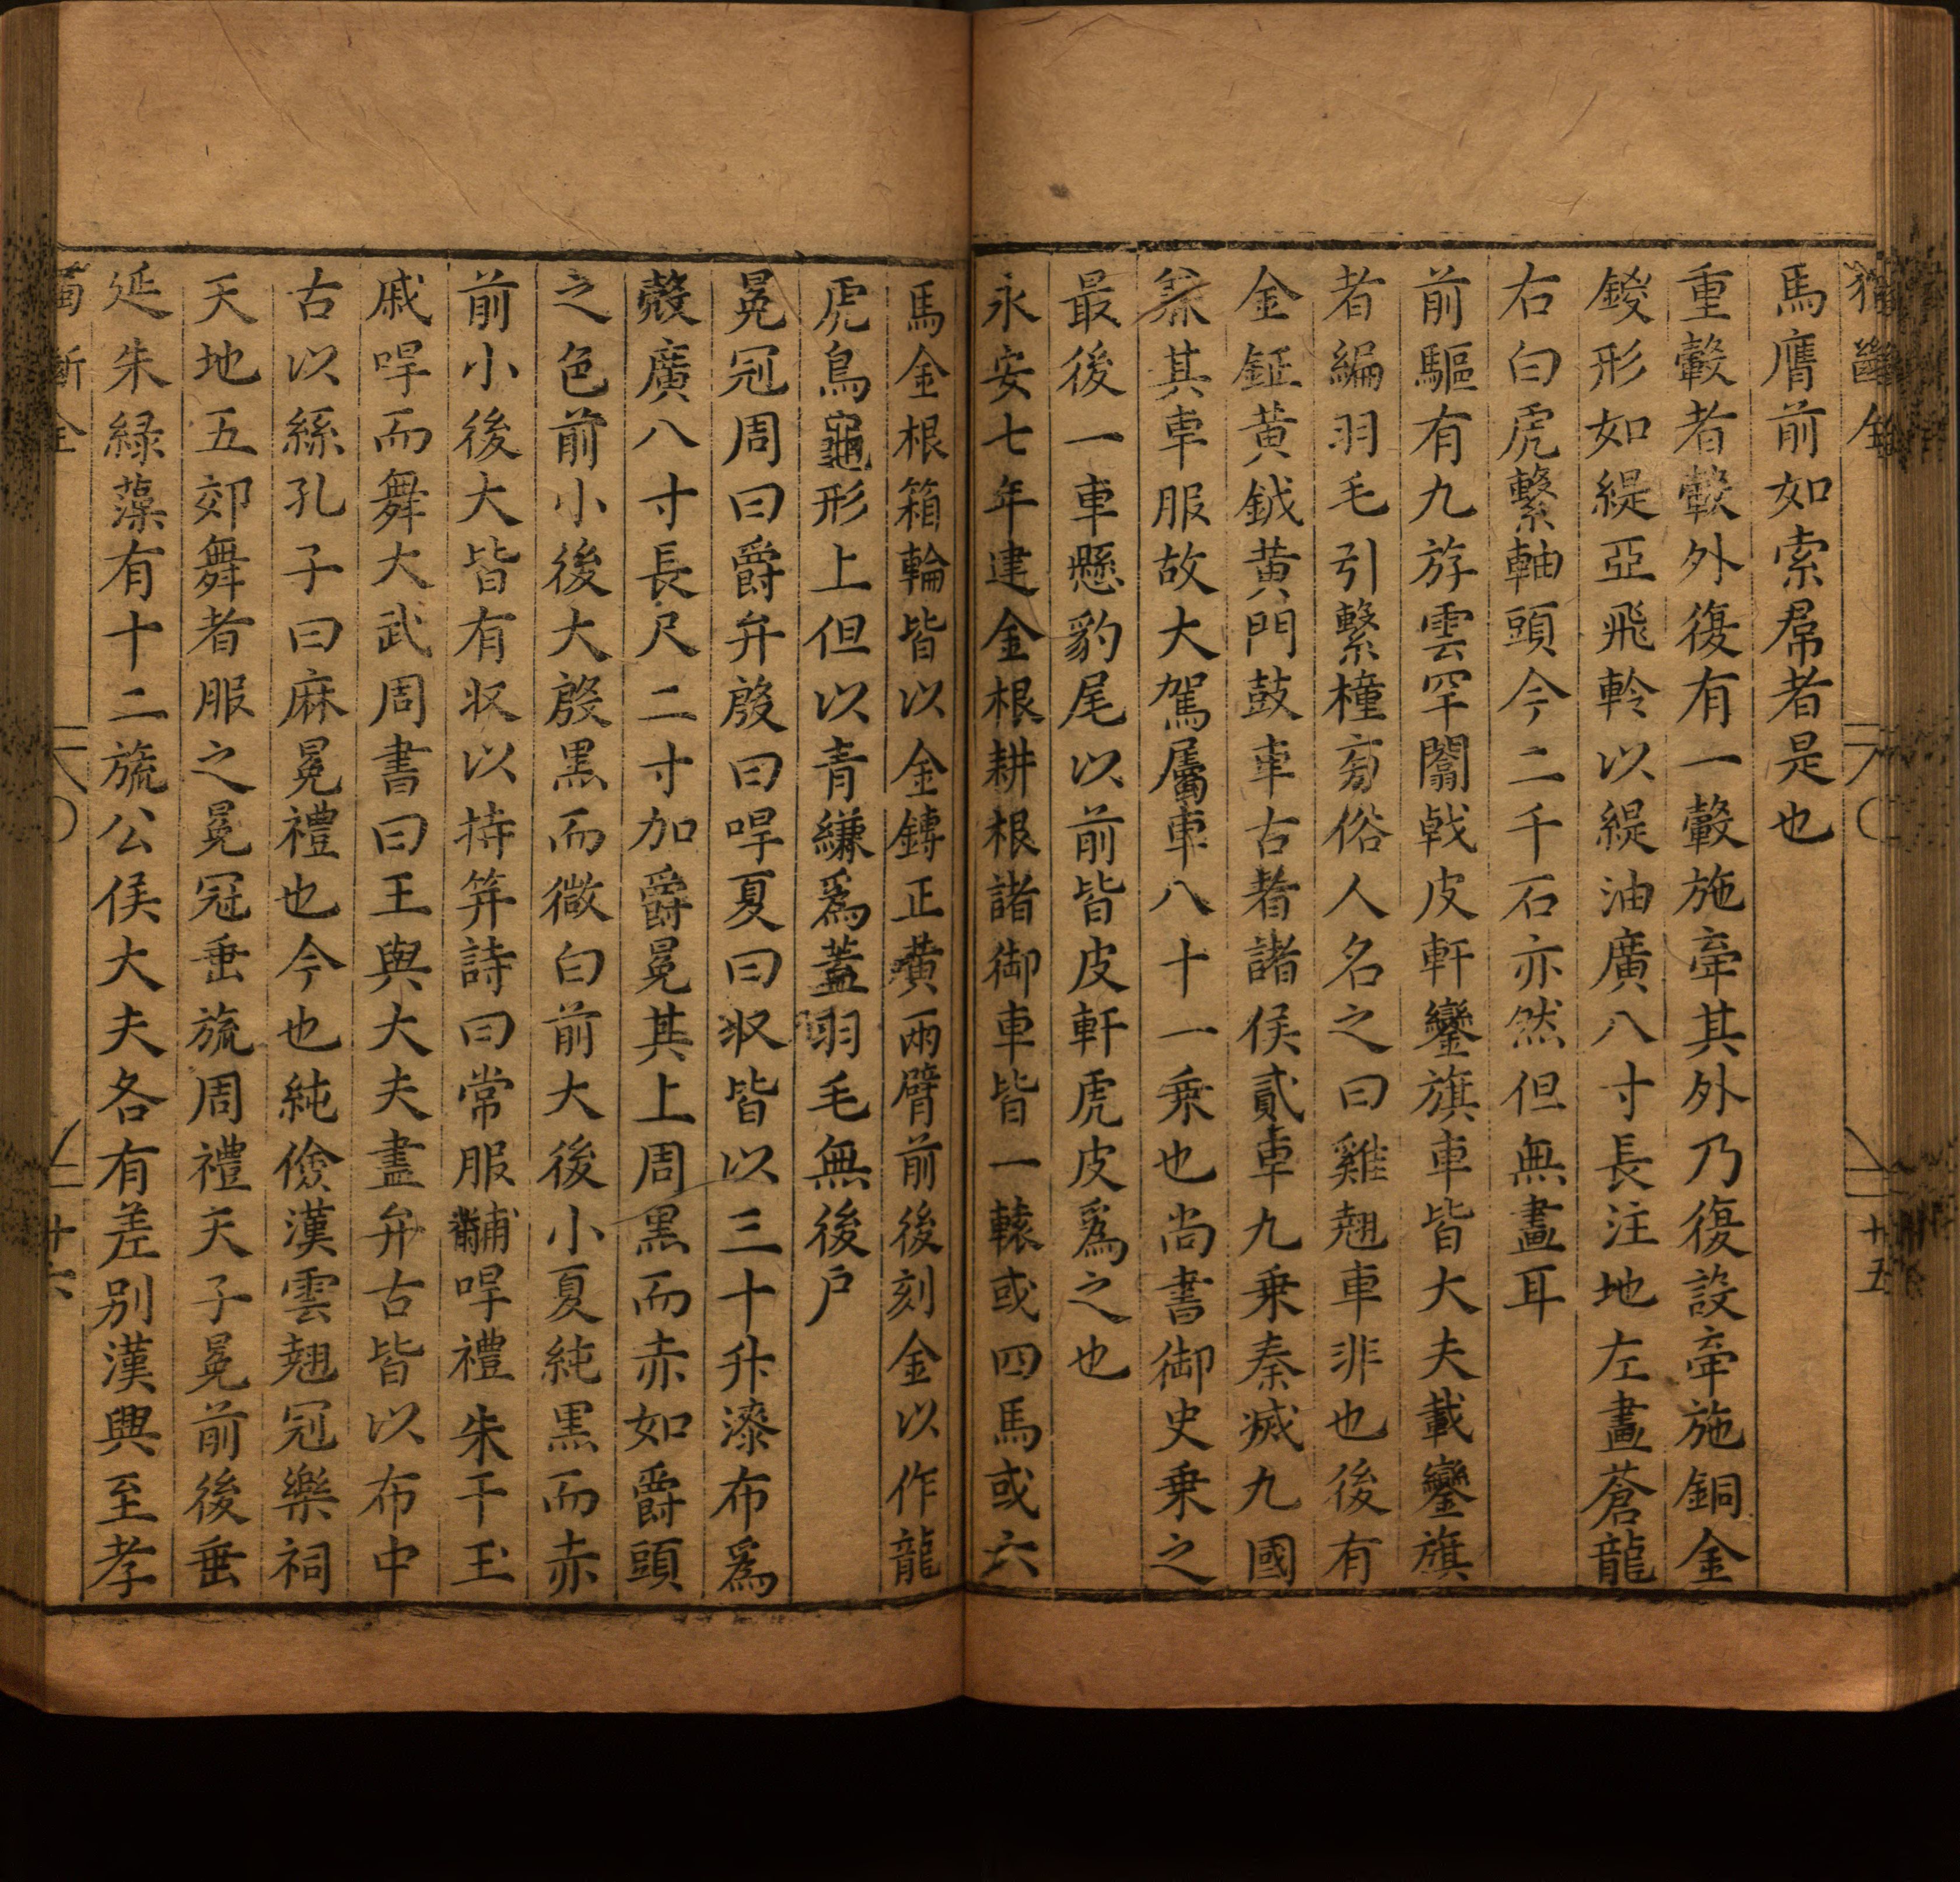 馬膺前如索帬者是也
重轂者轂外復有一轂施牽其外乃復設牽施銅金
鍐形如緹亞飛軨以緹油廣八寸長注地左畫蒼龍
右白虎繫軸頭今二千石亦然但無畫耳
前驅有九斿雲罕闟戟皮軒鑾旗車皆大夫載鑾旗
者編羽毛引繫橦旁俗人名之曰雞翹車非也後有
金鉦黄鉞黄門鼓車古者諸侯貳車九乗秦滅九國
兼其車服故大駕屬車八十一乗也尚書御史乗之
最後一車懸豹尾以前皆皮軒虎皮爲之也
永安七年建金根耕根諸御車皆一轅或四馬或六
馬金根箱輪皆以金鎛正黄兩臂前後刻金以作龍
虎鳥龜形上但以青縑爲蓋羽毛無後户
冕冠周曰爵弁殷曰哻夏曰收皆以三十升漆布爲
殼廣八寸長尺二寸加爵冕其上周黑而赤如爵頭
之色前小後大殷黑而微白前大後小夏純黑而赤
前小後大皆有收以持筓詩曰常服黼哻禮朱干玉
戚哻而舞大武周書曰王與大夫盡弁古皆以布中
古以絲孔子曰麻冕禮也今也純儉漢雲翹冠樂祠
天地五郊舞者服之冕冠垂旒周禮天子冕前後垂
延朱緑藻有十二旒公侯大夫各有差别漢興至孝